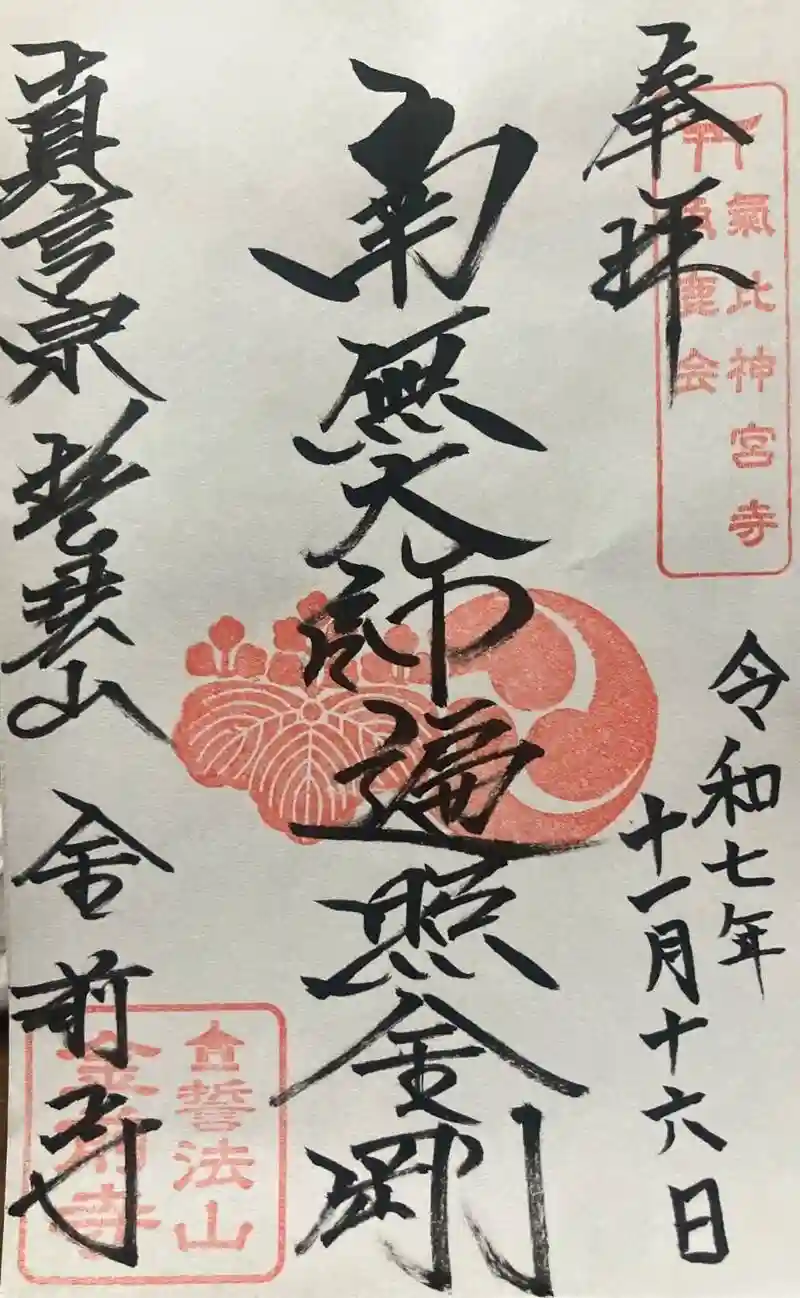 奉拝
氣比神宮寺
鹿会
令和七年
十一月十六日
南無大師遍照金剛
真言宗 誓法山 金前寺
誓法山
金前寺